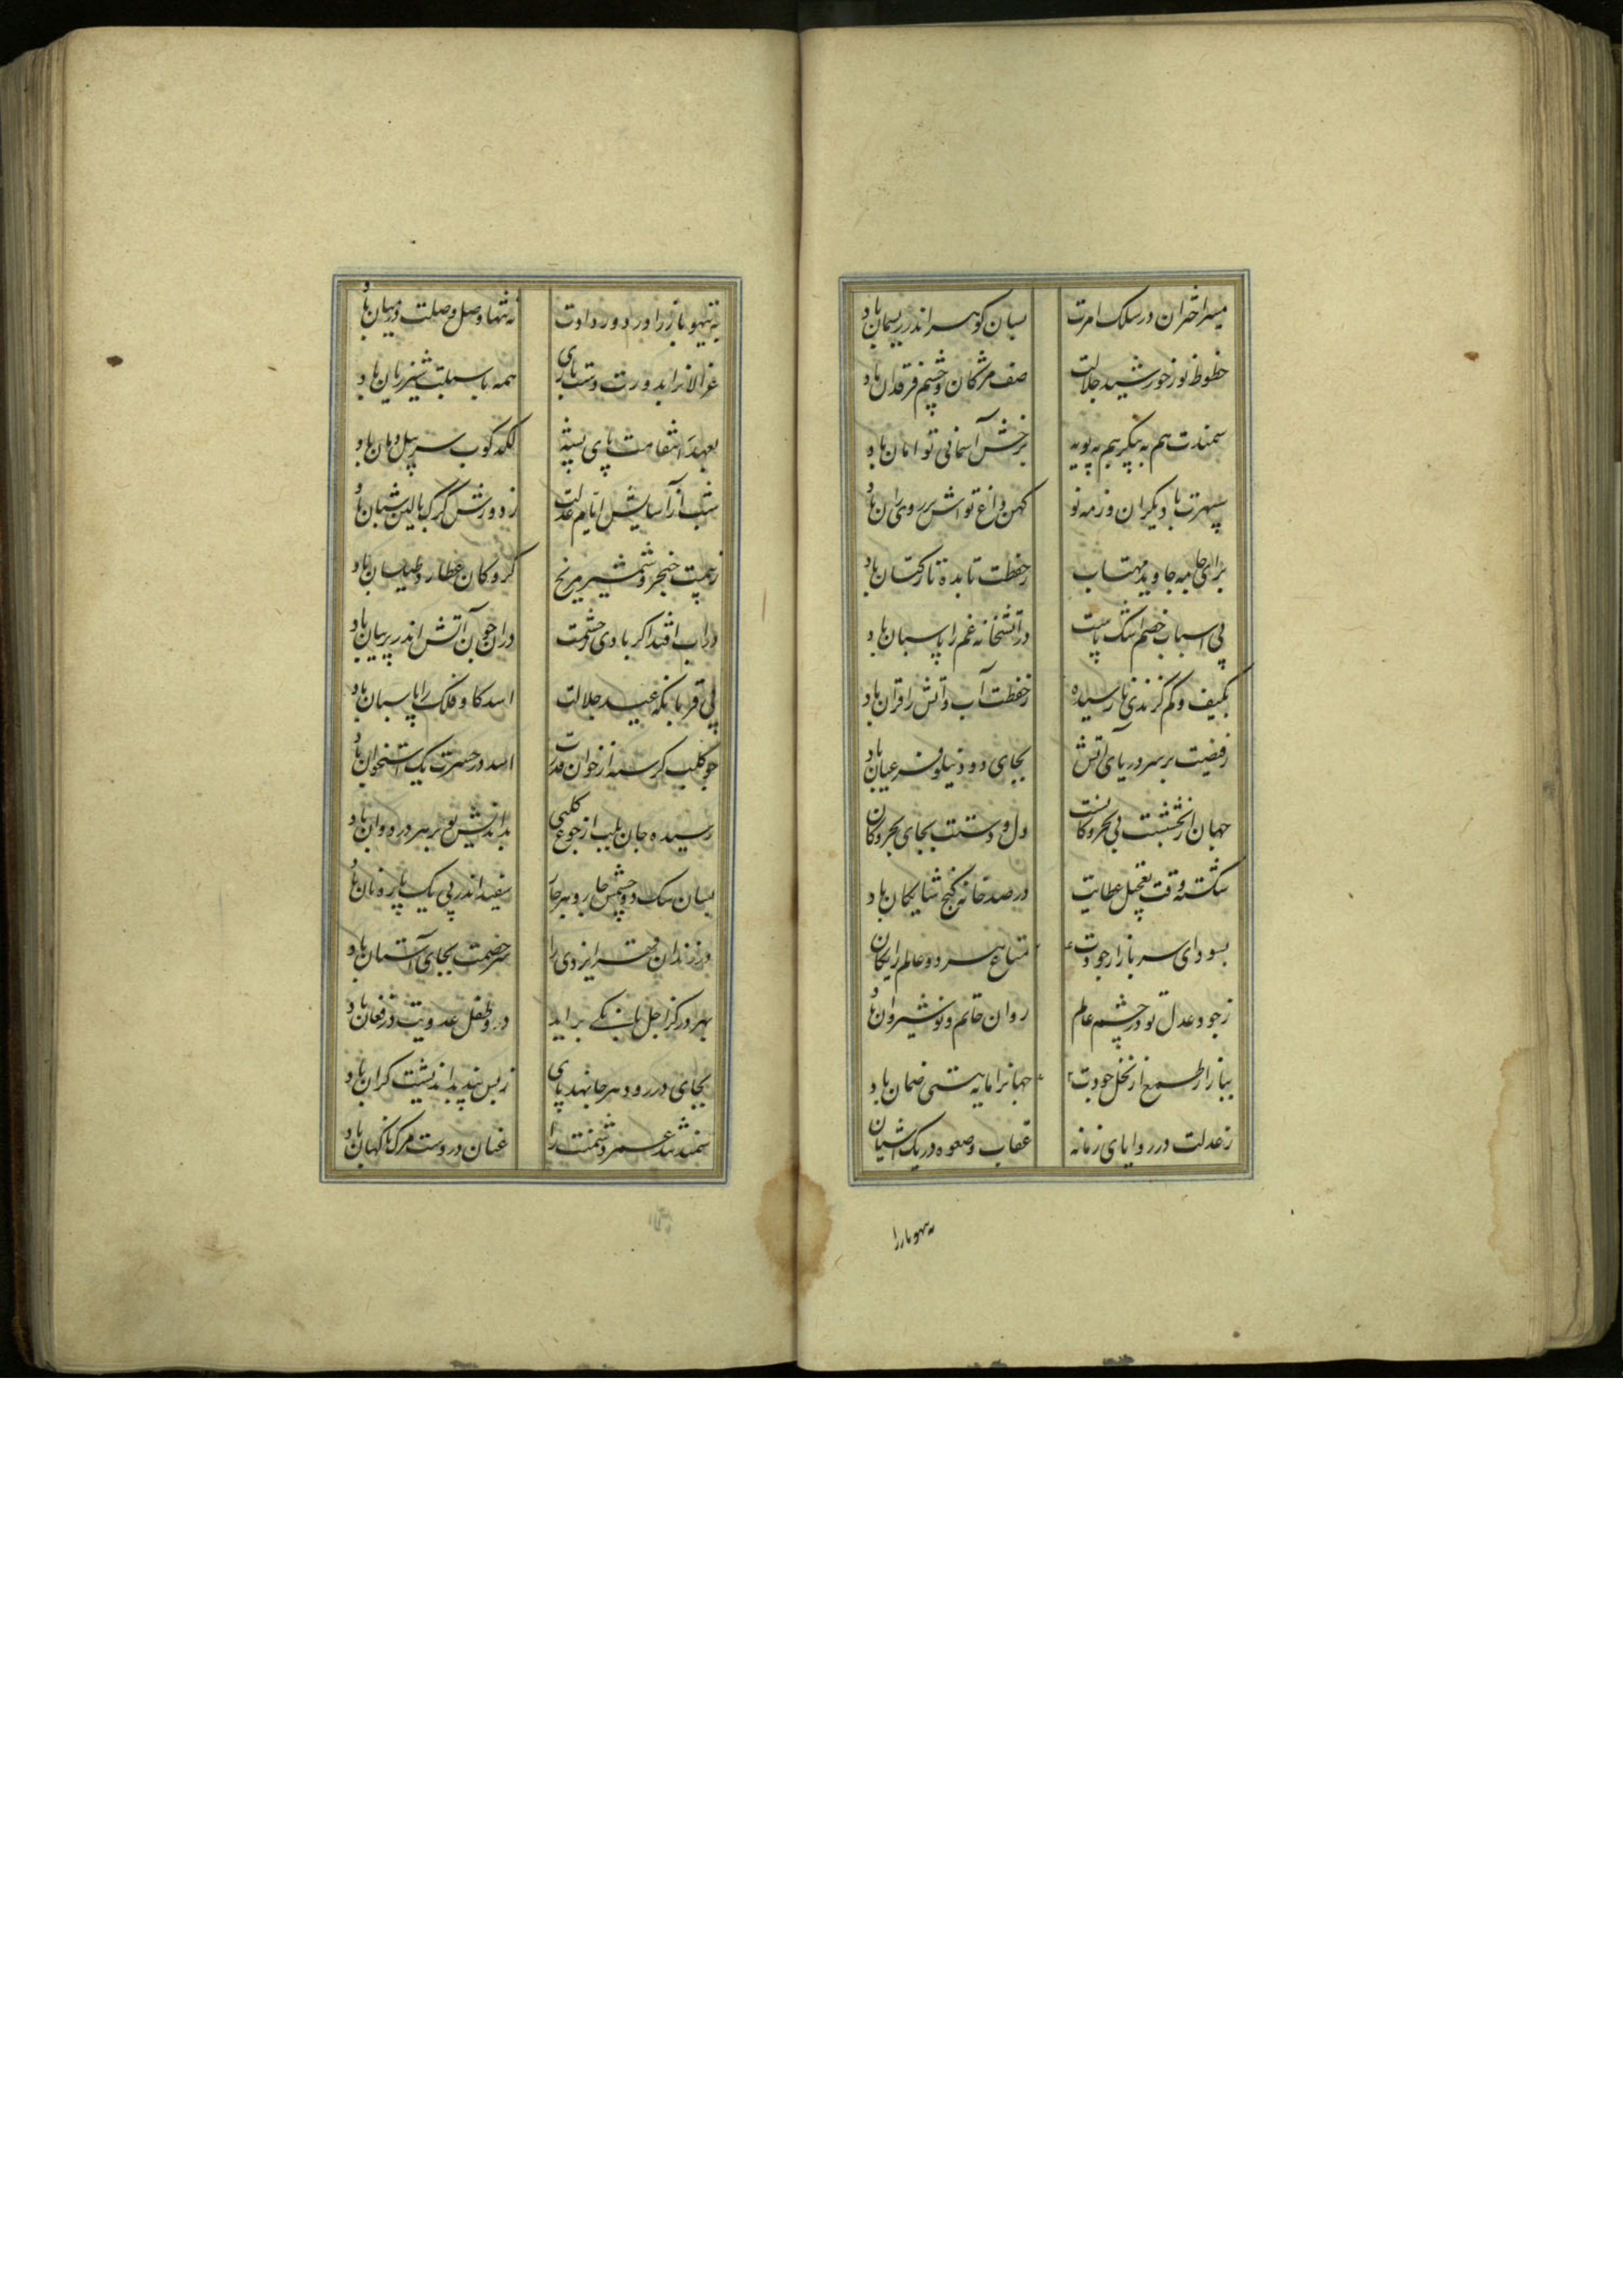 میسر اختران در سلک امرت
بسان گوهر اندر ریسمان باد
خطوط نور خورشید جلالت
صف مژگان و چشم فرقدان باد
سمندت هم به پیکر هم به پویه
برخش آسمانی توامان باد
سپهرت با دیگران وزمه نو
کهن داغ تواش بر روی ران باد
برای جامه جاوید مهتاب
زحفظت تا بده تار کتان باد
پی اسباب خصم اشک پاست
در آتشخانه غم را پاسبان باد
بکیف و کم گزندی نارسیده
زحفظت آب و آتش را قران باد
زفیضت بر سر دریای آتش
بجای دود نیلوفر عیان باد
جهان از بخششت بی بحر و کانست
دل و دستت بجای بحر و کان
شکسته وقت تعجیل عطایت
در صد خانه گنج شایکان باد
بسودای سر بازار جودت
متاع هر دو عالم رایکان
زجود عدل تو در چشم عالم
روان حاتم و نوشیروان باد
بیازار طمع از نخل جودت
جهانرا مایه هستی ضمان باد
زعدلت در زوایای زمانه
عقاب و صعوه در یک آشیان
به تیهو باز را در دور دادت
نه تنها وصل و صلت در میان باد
غزالانرا بدورت دست بازی
همه با سبلت شیر ژیان باد
بعهد انتقامت پای پشه
لکدکوب سر پیل دمان باد
شب از آسایش ایام عدلت
زدوزش گرگ بالین شبان باد
زبیمت خنجر و شمشیر مریخ
گرو کان عطار و طیلسان باد
در آب افتد اگر بادی خشمت
در آن چون آتش اندر پرنیان باد
پی قربانگه عید جلالت
اسد گاو فلک را پاسبان باد
چو کلب گرسنه از خوان قدرت
اسد در حسرت یک استخوان باد
رسیده جان بلب از جوع کلبی
بداندیش تو بر هر در دوان باد
بسان سگ دو چشمش چار و هر جا
سفید اندر پی یک پاره نان باد
در زندان قهر ایزدی را
سر خصمت بجای آستان باد
بهر در کز اجل بانکی براید
در و طفل عدویت در فغان باد
بجای در رود هر جا نهد پای
زبس بند بد اندیشت گران باد
سمند تند عمر دشمنت را
عنان در دست مرگ ناگهان باد